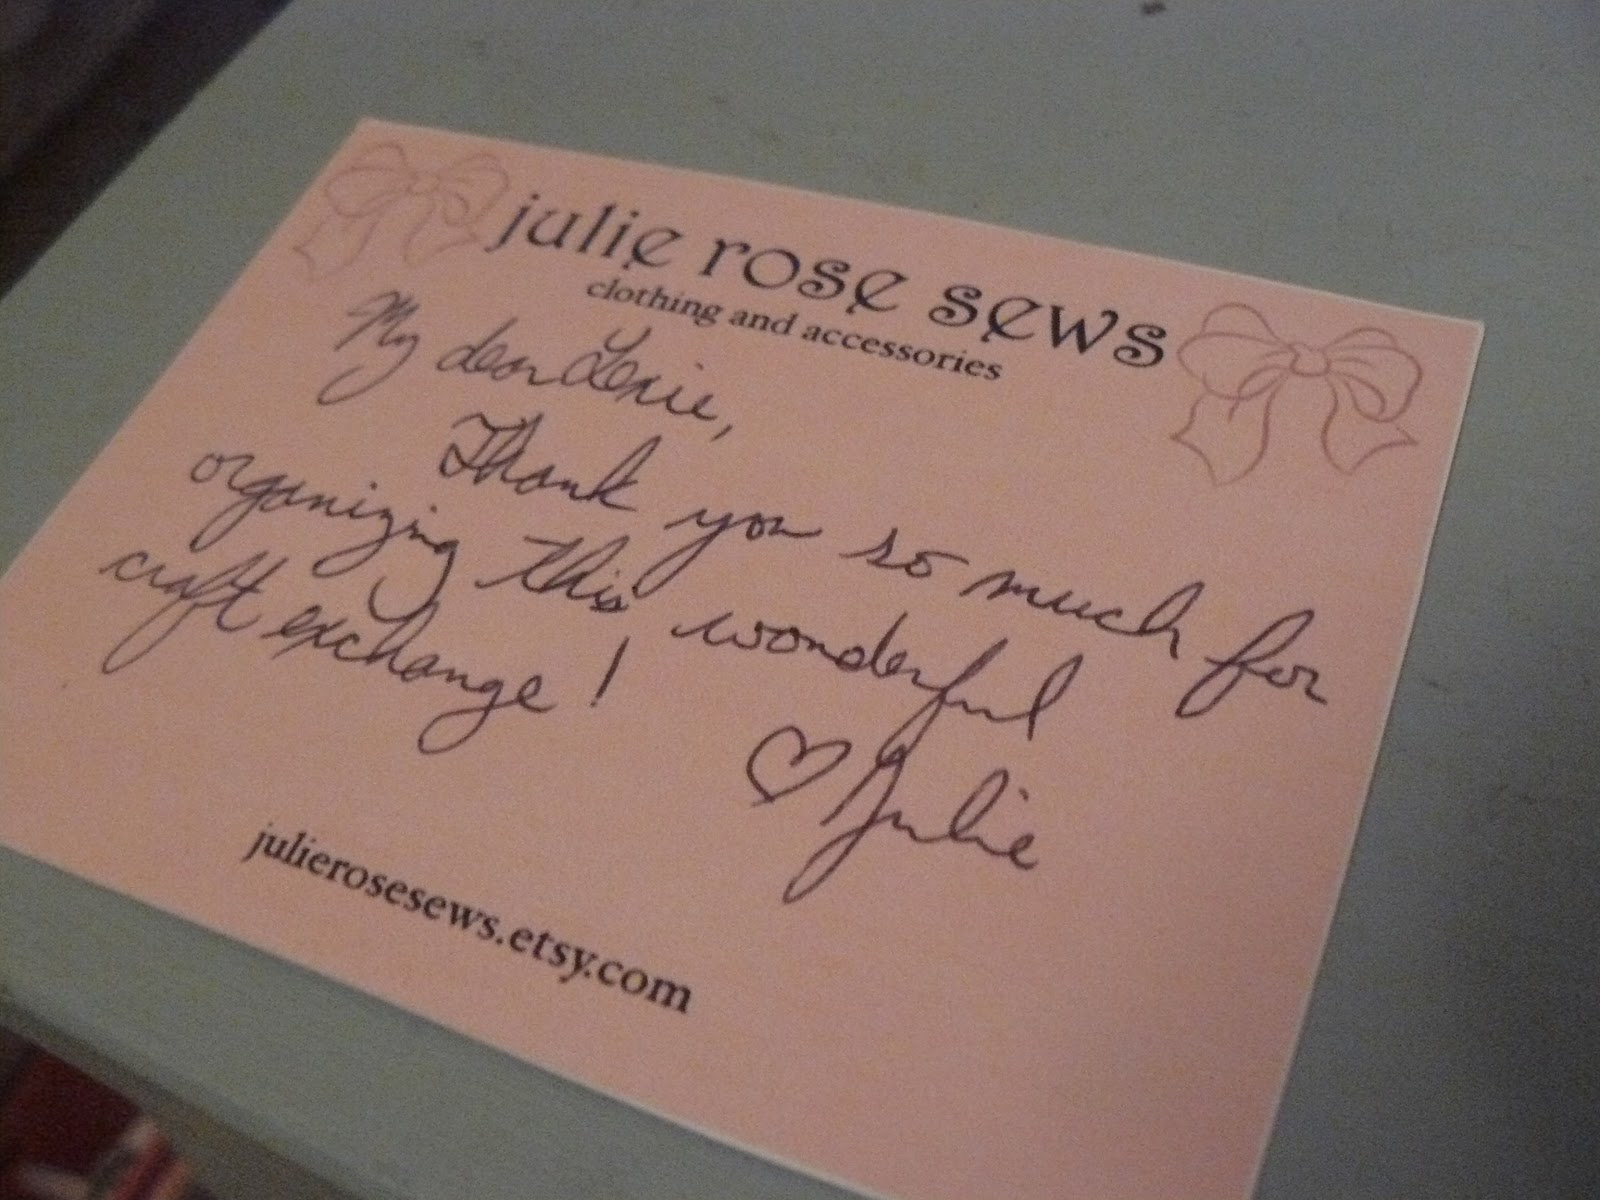 julie rose sews
clothing and accessories
My dear Lexie,
Thank you so much for
organizing this wonderful
craft exchange!
♡ Julie
julierosesews.etsy.com